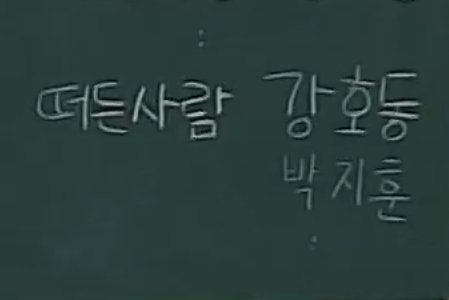 떠든사람 강호동
박지훈